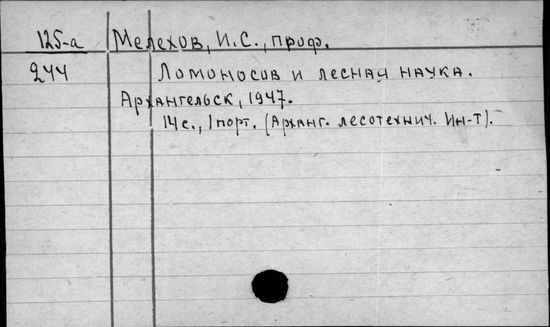 125-а Мелехов, И.С., проф.
244 Ломоносов и лесная наука.
Архангельск, 1947.
14 с., 1 порт. (Арханг. лесотехнич. Ин-т).